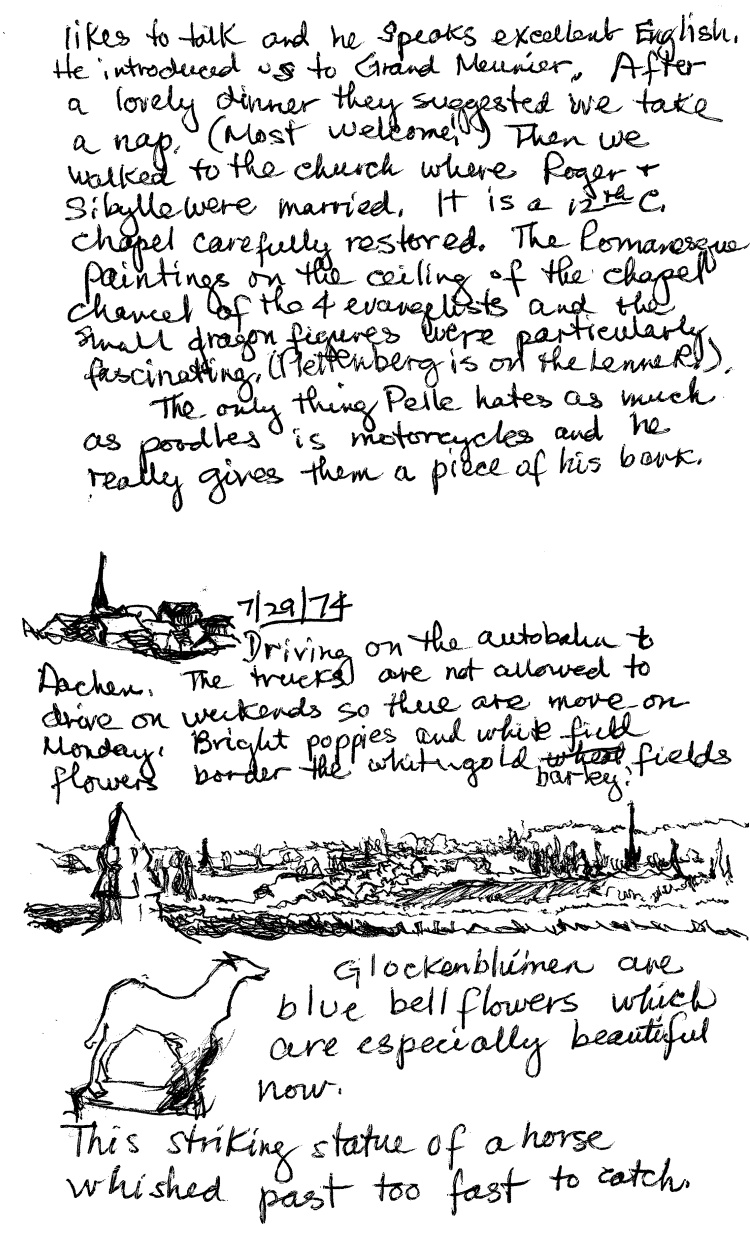 likes to talk and he speaks excellent English.
He introduced us to Grand Meunier. After
a lovely dinner they suggested we take
a nap. (Most welcome!) Then we
walked to the church where Roger +
Sibylle were married. It is a 12th C.
chapel carefully restored. The Romanesque
paintings on the ceiling of the chapel
chancel of the 4 evangelists and the
small dragon figures were particularly
fascinating. (Plettenberg is on the Lenne R.).
The only thing Pelle hates as much
as poodles is motorcycles and he
really gives them a piece of his bark.
7/29/74
Driving on the autobahn to
Aachen. The trucks are not allowed to
drive on weekends so there are more on
Monday. Bright poppies and white field
flowers border the whitengold wheat fields
barley?
Glockenblümen are
blue bell flowers which
are especially beautiful
now.
This striking statue of a horse
whished past too fast to catch.